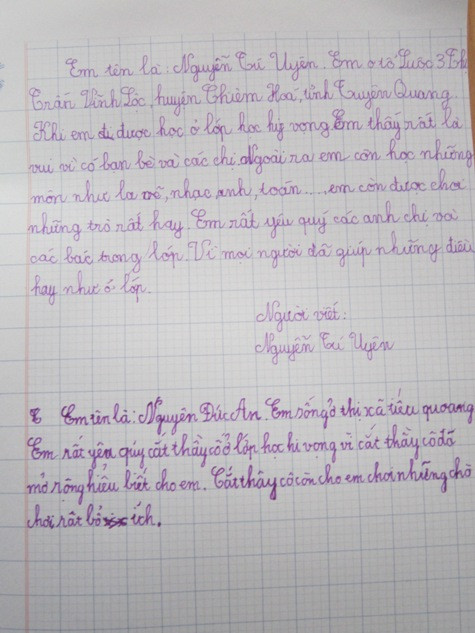 Em tên là: Nguyễn Trí Uyên. Em ở tổ Luộc 3 Thị
Trấn Vĩnh Lộc, huyện Chiêm Hoá, tỉnh Tuyên Quang.
Khi em đu được học ở lớp học hy vọng. Em thấy rất là
vui vì có bạn bè và các chị. Ngoài ra em còn học những
môn như la vẽ, nhạc, anh, toán...., em còn được chơi
những trò rất hay. Em rất yêu quý các anh chị và
các bác trong lớp. Vì mọi người đã giúp những điều
hay như ở lớp.
Người viết:
Nguyễn Trí Uyên
Em tên là: Nguyên Đức An. Em sống ở thị xã tiêu quoang
Em rất yêu qúy cắt thầy cô ở lớp học hi vọng vì cắt thầy cô đã
mở rông hiểu biết cho em. Cắt thầy cô còn cho em chơi những chò
chơi rất bổ ích.